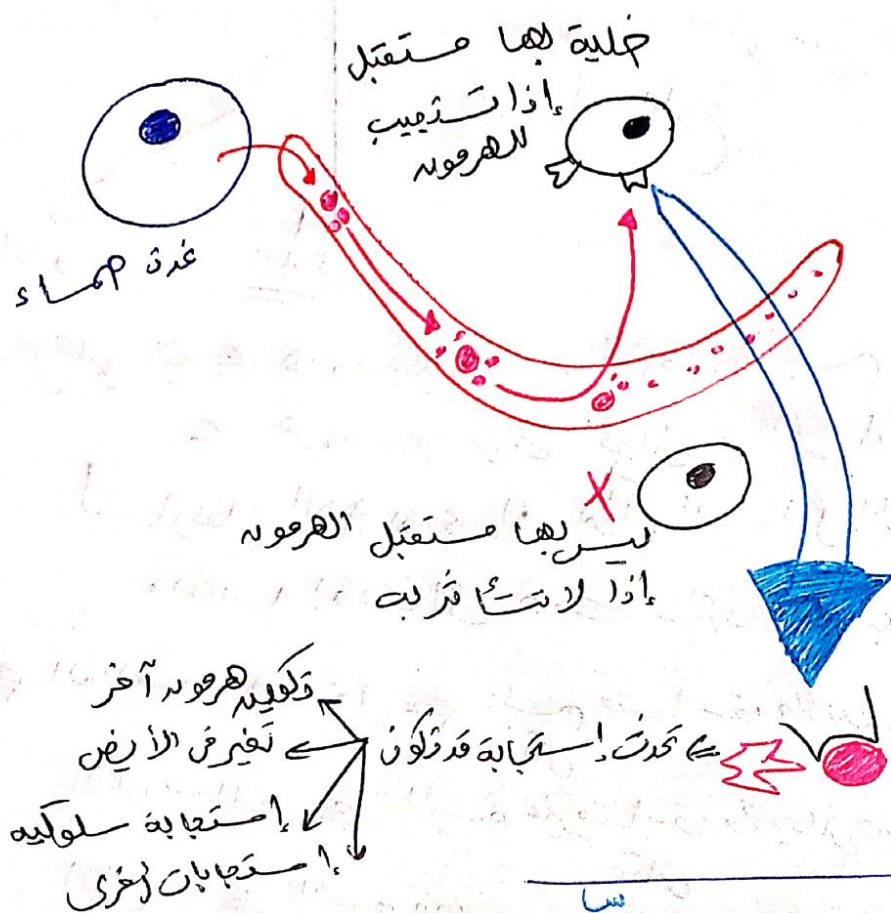 خلية بها مستقبل
إذا تستجيب
للهرمون
غدة صماء
ليس بها مستقبل الهرمون
إذاً لا تتأثر به
تحدث إستجابة قد تكون
تكوين هرمون آخر
تغير في الأيض
إستجابة سلوكية
إستجابات أخرى